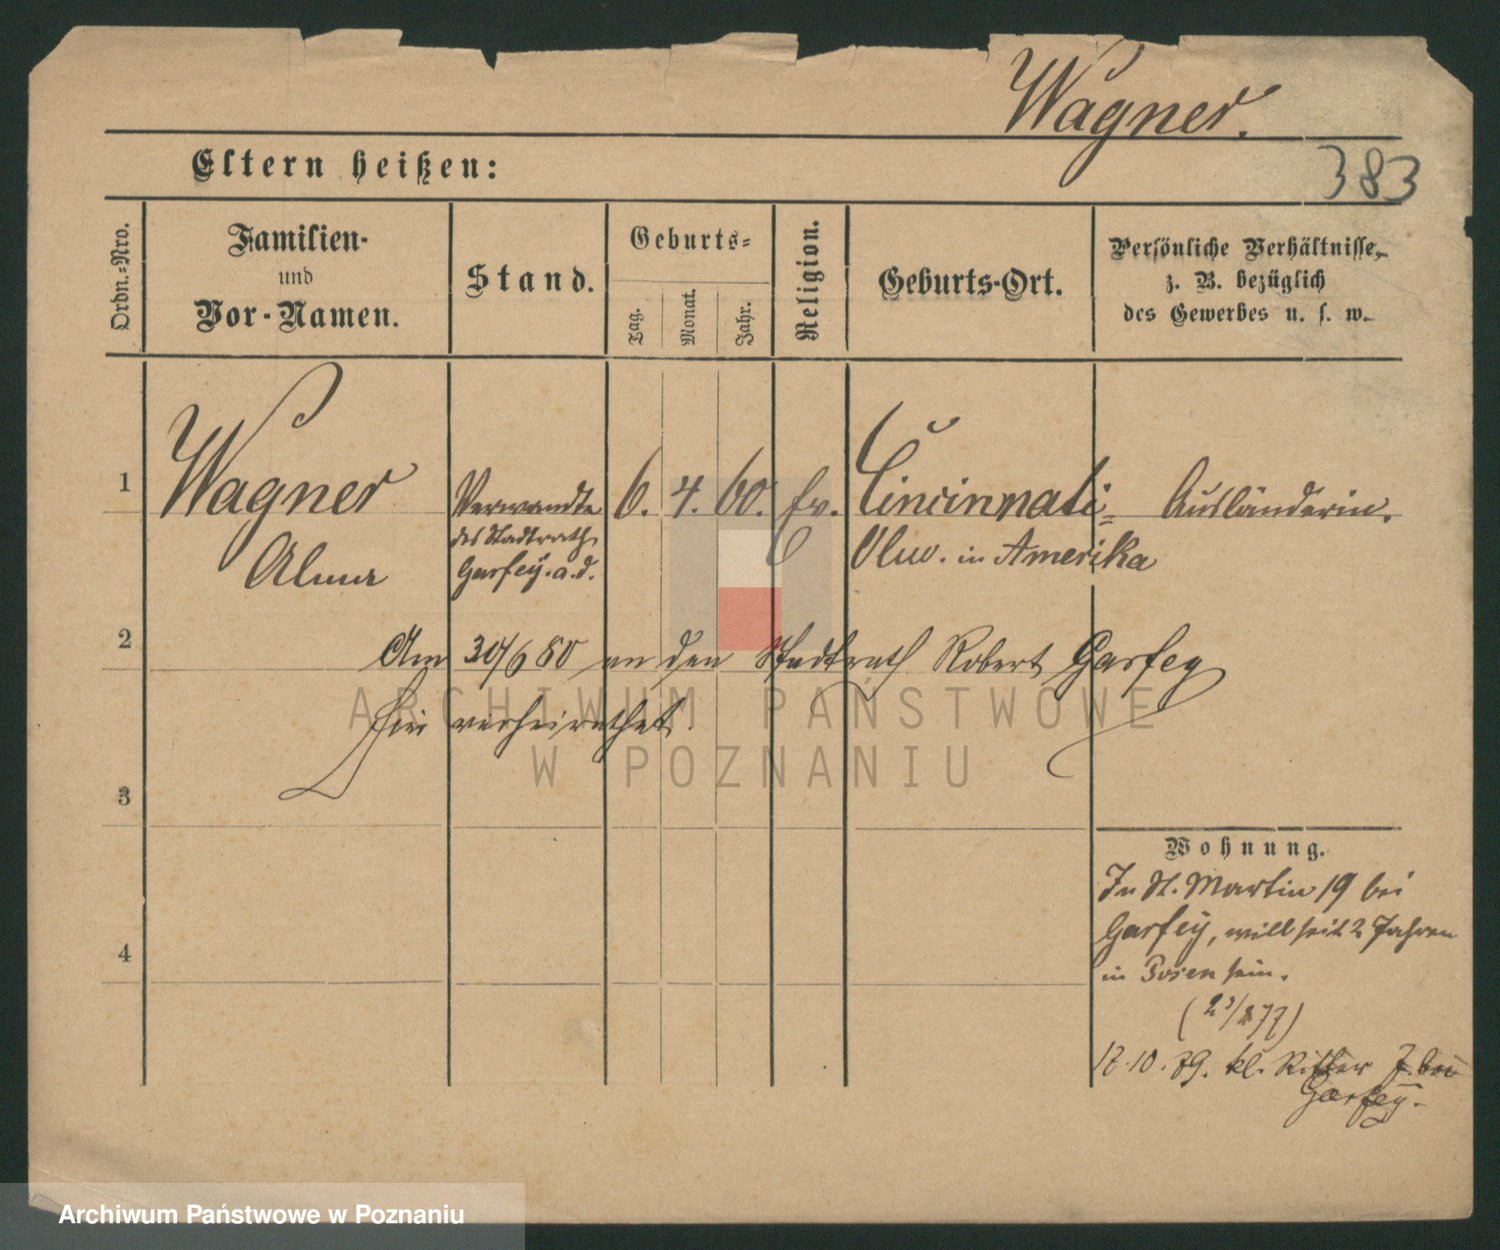 Wagner.
383
Eltern heißen:
Ordn.-Nro.
Familien-
und
Vor-Namen.
Stand.
Geburts-
Tag.
Monat.
Jahr.
Religion.
Geburts-Ort.
Persönliche Verhältnisse,
z. B. bezüglich
des Gewerbes u. s. w.
1
Wagner Verwandte 6. 4. 60. Ev. Cincinnati Ausländerin.
Alma des Stadtrath in Amerika
Garfey. a. d.
2
Am 30/6 80 an den Stadtrath Robert Garfey
hier verheirathet.
ARCHIWUM PAŃSTWOWE
W POZNANIU
3
Wohnung.
St. Martin 19 bei
Garfey, will seit 2 Jahren
in Posen sein.
4
17.10.79. kl. Ritter 7. bei
Garfey.
Archiwum Państwowe w Poznaniu